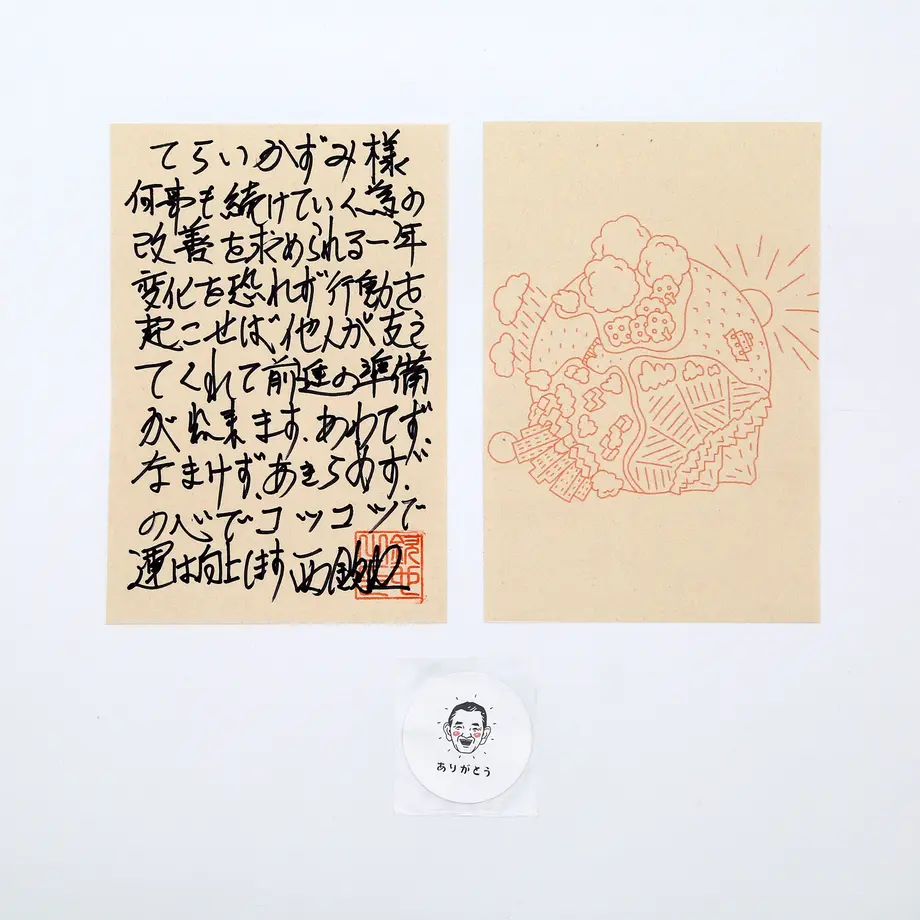 てらいかずみ様
何事も続けていく為の
改善を求められる一年
変化を恐れず行動を
起こせば、他人が支え
てくれて前進の準備
が出来ます。あわてず、
なまけず、あきらめず、
の心でコツコツで
運は向上します
ありがとう